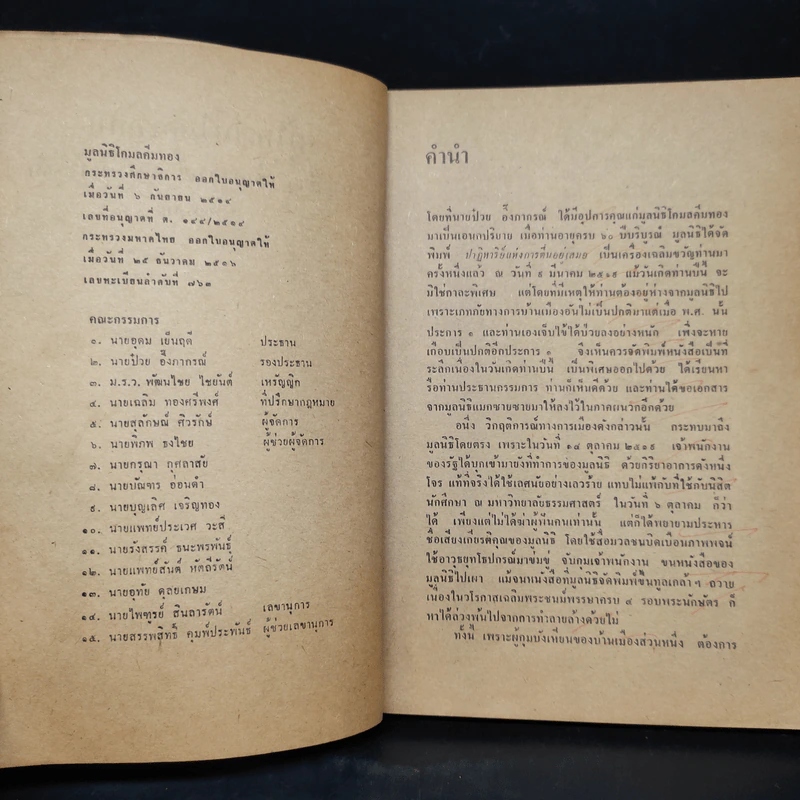 มูลนิธิโกมลคีมทอง
กระทรวงศึกษาธิการ ออกใบอนุญาตให้
เมื่อวันที่ ๖ กันยายน ๒๕๑๔
เลขที่อนุญาตที่ ต. ๑๔๔/๒๕๑๔
กระทรวงมหาดไทย ออกใบอนุญาตให้
เมื่อวันที่ ๒๕ ธันวาคม ๒๕๑๖
เลขทะเบียนลำดับที่ ๗๖๓
คณะกรรมการ
๑. นายอุดม เย็นฤดี ประธาน
๒. นายป๋วย อึ๊งภากรณ์ รองประธาน
๓. ม.ร.ว. พัฒนไชย ไชยันต์ เหรัญญิก
๔. นายเฉลิม ทองศรีพงศ์ ที่ปรึกษากฎหมาย
๕. นายสุลักษณ์ ศิวรักษ์ ผู้จัดการ
๖. นายพิภพ ธงไชย ผู้ช่วยผู้จัดการ
๗. นายกรุณา กุศลาสัย
๘. นายบัณฑร อ่อนดำ
๙. นายบุญเลิศ เจริญทอง
๑๐. นายแพทย์ประเวศ วะสี
๑๑. นายรังสรรค์ ธนะพรพันธุ์
๑๒. นายแพทย์สันต์ หัตถีรัตน์
๑๓. นายอุทัย ดุลยเกษม
๑๔. นายไพฑูรย์ สินลารัตน์ เลขานุการ
๑๕. นายสรรพสิทธิ์ คุมพ์ประพันธ์ ผู้ช่วยเลขานุการ
คำนำ
โดยที่นายป๋วย อึ๊งภากรณ์ ได้มีอุปการคุณแก่มูลนิธิโกมลคีมทอง
มาเป็นเอนกปริยาย เมื่อท่านอายุครบ ๖๐ ปีบริบูรณ์ มูลนิธิได้จัด
พิมพ์ ปาฏิหาริย์แห่งการตื่นอยู่เสมอ เป็นเครื่องเฉลิมขวัญท่านมา
ครั้งหนึ่งแล้ว ณ วันที่ ๙ มีนาคม ๒๕๑๙ แม้วันเกิดท่านปีนี้ จะ
มิใช่กาละพิเศษ แต่โดยที่มีเหตุให้ท่านต้องอยู่ห่างจากมูลนิธิไป
เพราะเภทภัยทางการบ้านเมืองอันไม่เป็นปกติมาแต่เมื่อ พ.ศ. นั้น
ประการ ๑ และท่านเองเจ็บไข้ได้ป่วยลงอย่างหนัก เพิ่งจะหาย
เกือบเป็นปกติอีกประการ ๑ จึงเห็นควรจัดพิมพ์หนังสือเป็นที่
ระลึกเนื่องในวันเกิดท่านปีนี้ เป็นพิเศษออกไปด้วย ได้เรียนหา
รือท่านประธานกรรมการ ท่านก็เห็นดีด้วย และท่านได้ขอเอกสาร
จากมูลนิธิแมกซายซายมาให้ลงไว้ในภาคผนวกอีกด้วย
อนึ่ง วิกฤติการณ์ทางการเมืองดังกล่าวนั้น กระทบมาถึง
มูลนิธิโดยตรง เพราะในวันที่ ๑๔ ตุลาคม ๒๕๑๙ เจ้าพนักงาน
ของรัฐได้บุกเข้ามายังที่ทำการของมูลนิธิ ด้วยกิริยาอาการดังหนึ่ง
โจร แท้ที่จริงได้ใช้เลศนัยอย่างเลวร้าย แทบไม่แพ้กับที่ใช้กับนิสิต
นักศึกษา ณ มหาวิทยาลัยธรรมศาสตร์ ในวันที่ ๖ ตุลาคม ก็ว่า
ได้ เพียงแต่ไม่ได้ฆ่าผู้ฟันคนเท่านั้น แต่ก็ได้พยายามประหาร
ชื่อเสียงเกียรติคุณของมูลนิธิ โดยใช้สื่อมวลชนบิดเบือนภาพพจน์
ใช้อาวุธยุทโธปกรณ์มาข่มขู่ จับกุมเจ้าพนักงาน ขนหนังสือของ
มูลนิธิไปเผา แม้จนหนังสือที่มูลนิธิจัดพิมพ์ขึ้นทูลเกล้าฯ ถวาย
เนื่องในวโรกาสเฉลิมพระชนม์พรรษาครบ ๔ รอบพระนักษัตร ก็
หาได้ล่วงพ้นไปจากการทำลายล้างด้วยไม่
ทั้งนี้ เพราะผู้กุมบังเหียนของบ้านเมืองส่วนหนึ่ง ต้องการ